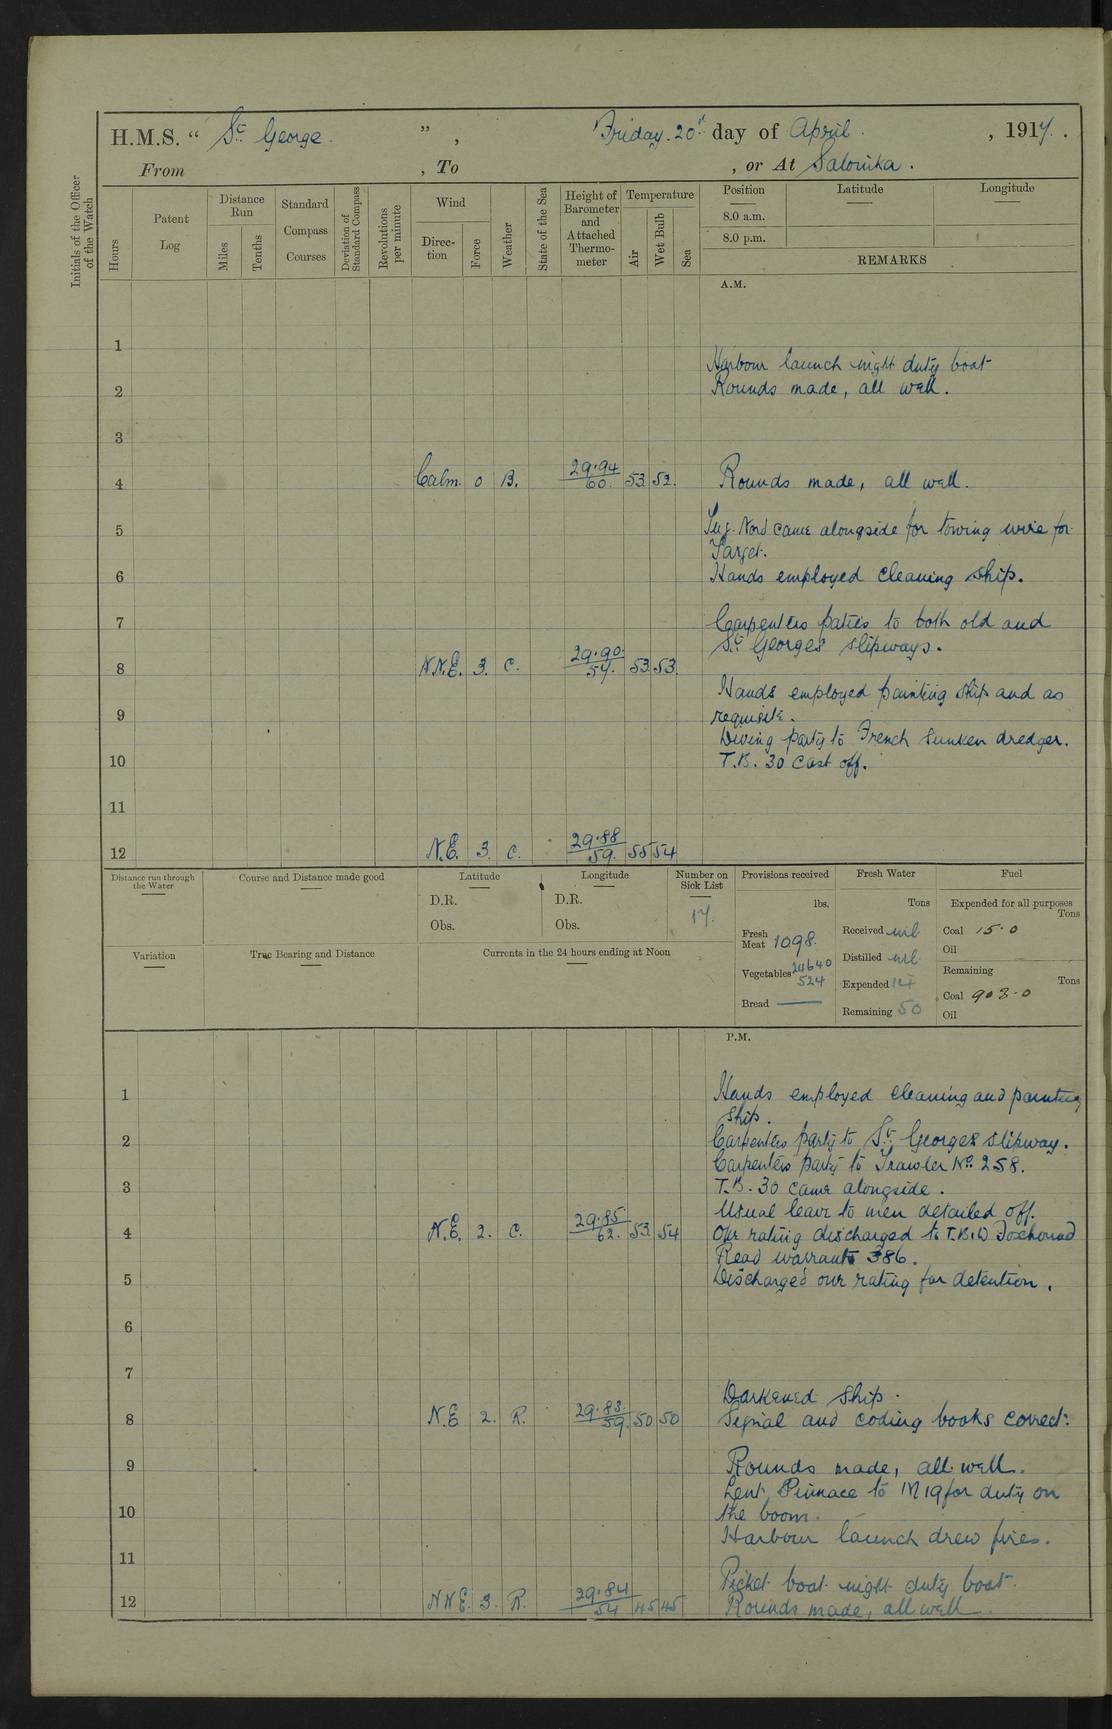 H.M.S. " St George " , Friday 20th day of April , 1917.
From , To , or At Salonika.
Initials of the Officer of the Watch
Hours
Patent Log
Distance Run
Miles
Tenths
Standard Compass Courses
Deviation of Standard Compass
Revolutions per minute
Wind
Direction
Force
Weather
State of the Sea
Height of Barometer and Attached Thermometer
Temperature
Air
Wet Bulb
Sea
Position Latitude Longitude
8.0 a.m.
8.0 p.m.
REMARKS
A.M.
1
Harbour launch night duty boat
2 Rounds made, all well.
3
4 Calm. 0 B. 29.94 60. 53 52. Rounds made, all well.
5 Tug Nord came alongside for towing wire for
Target.
6 Hands employed cleaning ship.
7 Carpenters paties to both old and
St Georges slipways.
8 N.N.E. 3. C. 29.90. 57. 53 53.
Hands employed painting ship and as
9 requisite.
Diving party to French sunken dredger.
10 T.B. 30 cast off.
11
12 N.E. 3. C. 29.88 59. 55 54
Distance run through the Water
Course and Distance made good
Latitude
D.R.
Obs.
Longitude
D.R.
Obs.
Number on Sick List
17.
Provisions received
lbs.
Fresh Meat 1098.
Vegetables 24640
524
Bread —
Fresh Water
Tons
Received nil
Distilled nil
Expended 14
Remaining 50
Fuel
Expended for all purposes
Tons
Coal 15.0
Oil
Remaining
Tons
Coal 903.0
Oil
Variation
True Bearing and Distance
Currents in the 24 hours ending at Noon
P.M.
1 Hands employed cleaning and painting
ship.
2 Carpenters party to St Georges slipway.
Carpenters party to Trawler No 258.
3 T.B. 30 came alongside.
Usual leave to men detailed off.
4 N.E. 2. C. 29.85 62. 53 54 One rating discharged to T.B.D Foxhound
Read warrant 386.
5 Discharged one rating for detention.
6
7
Darkened ship.
8 N.E. 2. R. 29.83. 59. 50 50 Signal and coding books correct.
9 Rounds made, all well.
Lent Pinnace to M 19 for duty on
10 the boom.
Harbour launch drew fires.
11
Picket boat night duty boat.
12 N N E. 3. R. 29.84 54 45 45 Rounds made, all well.